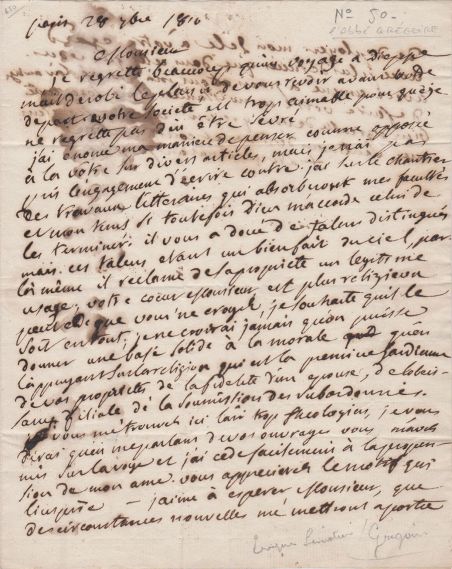 No 50.
l'abbé Grégoire
paris 28 9bre 18
Monsieur
je regrette beaucoup qu'un voyage à Dieppe
m'ait dérobé le plaisir de vous revoir avant votre
depart, votre societé est trop aimable pour que je
ne regrette pas d'en être sévré
j'ai énoncé ma maniere de penser comme opposée
à la votre sur divers articles, mais je n'ai pas
pris l'engagement d'écrire contre, j'ai sur le chantier
des travaux litteraires qui absorberont mes facultés
et mon tems si toutefois Dieu m'accorde celui de
les terminer. il vous a doué de talens distingués
mais ces talens etant un bienfait du ciel, par
là même il réclame de sa proprieté un legitime
usage; votre coeur Monsieur est plus religieux
peut etre que vous ne croyez, je souhaite qu'il le
soit en tout; je ne croirai jamais qu'on puisse
donner une base solide à la morale qu'en
l'appuyant sur la religion qui est la premiere gardienne
de vos proprietés de la fidelité d'une epouse, de l'obeis-
sance filiale de la soumission des subordonnés.
vous me trouverez ici l'air trop theologien, je vous
dirai qu'en me parlant de vos ouvrages vous m'avez
mis sur la voye et j'ai cédé facilement à la propen-
sion de mon ame vous apprecierez le motif qui
l'inspire – j'aime à esperer Monsieur, que
des circonstances nouvelles me mettront à portée
Grégoire